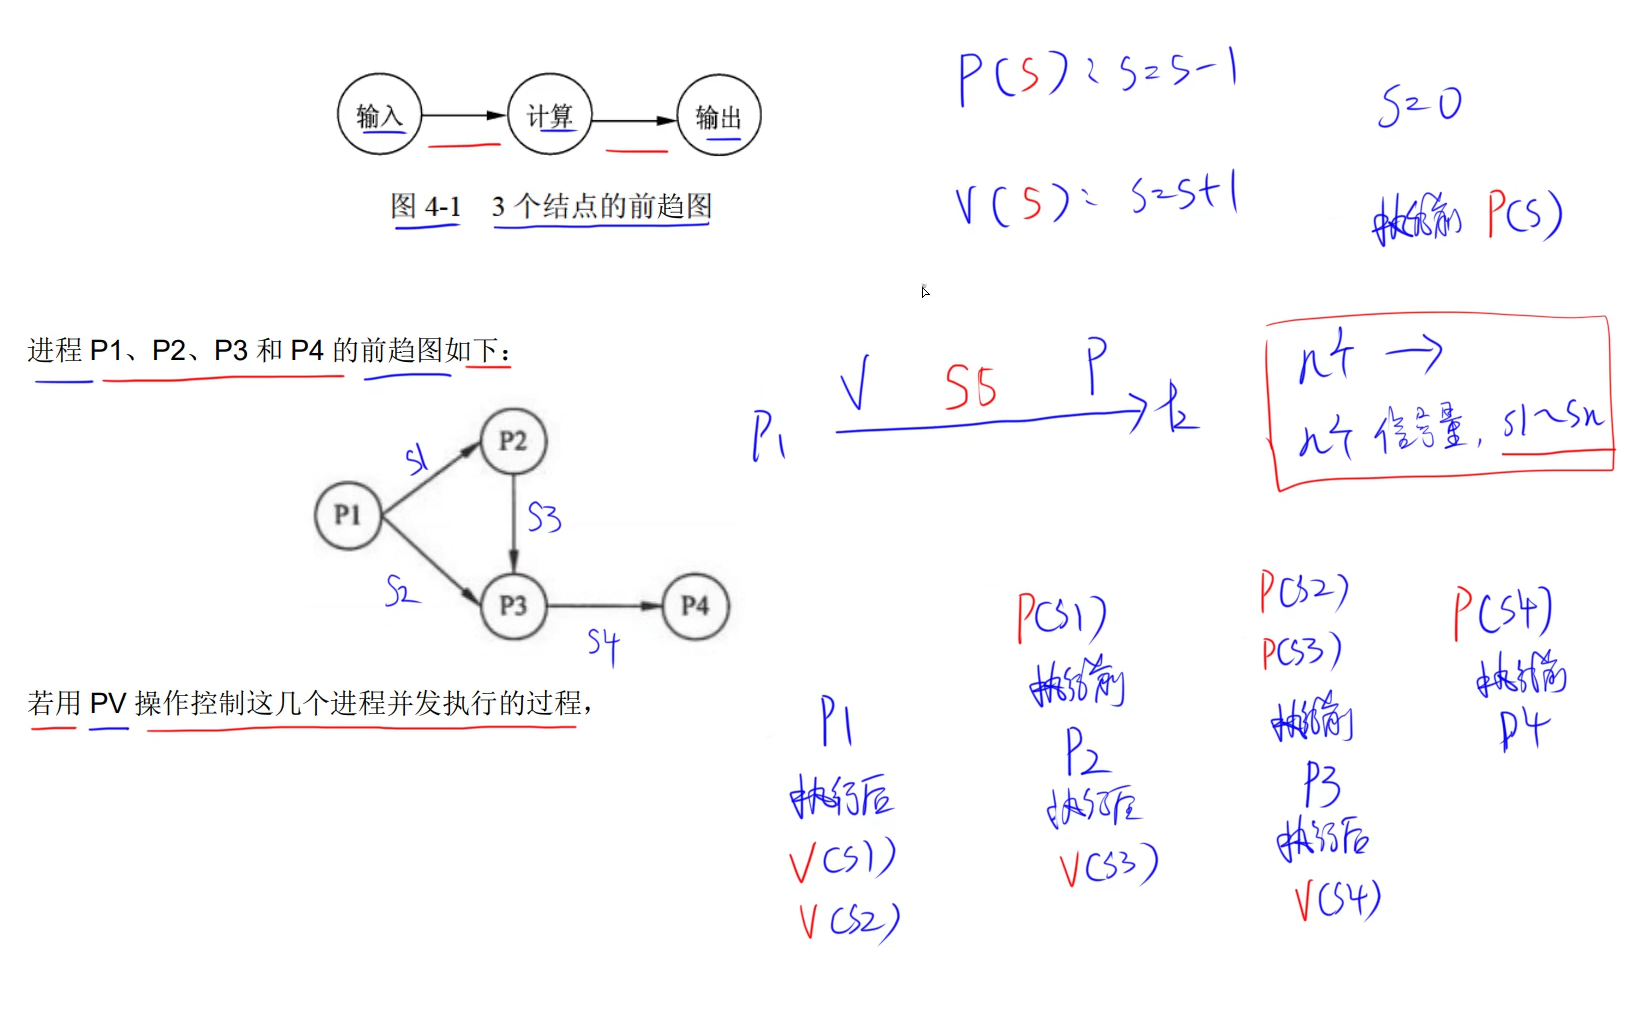 输入 计算 输出
图 4-1 3 个结点的前趋图
P(S): S=S-1
V(S): S=S+1
S=0
执行前 P(S)
进程 P1、P2、P3 和 P4 的前趋图如下:
P1 V S5 P P2
n个 →
n个 信号量, S1~Sn
P2
S1
P1
S3
S2
P3
P4
S4
若用 PV 操作控制这几个进程并发执行的过程,
P1
执行后
V(S1)
V(S2)
P(S1)
执行前
P2
执行后
V(S3)
P(S2)
P(S3)
执行前
P3
执行后
V(S4)
P(S4)
执行前
P4